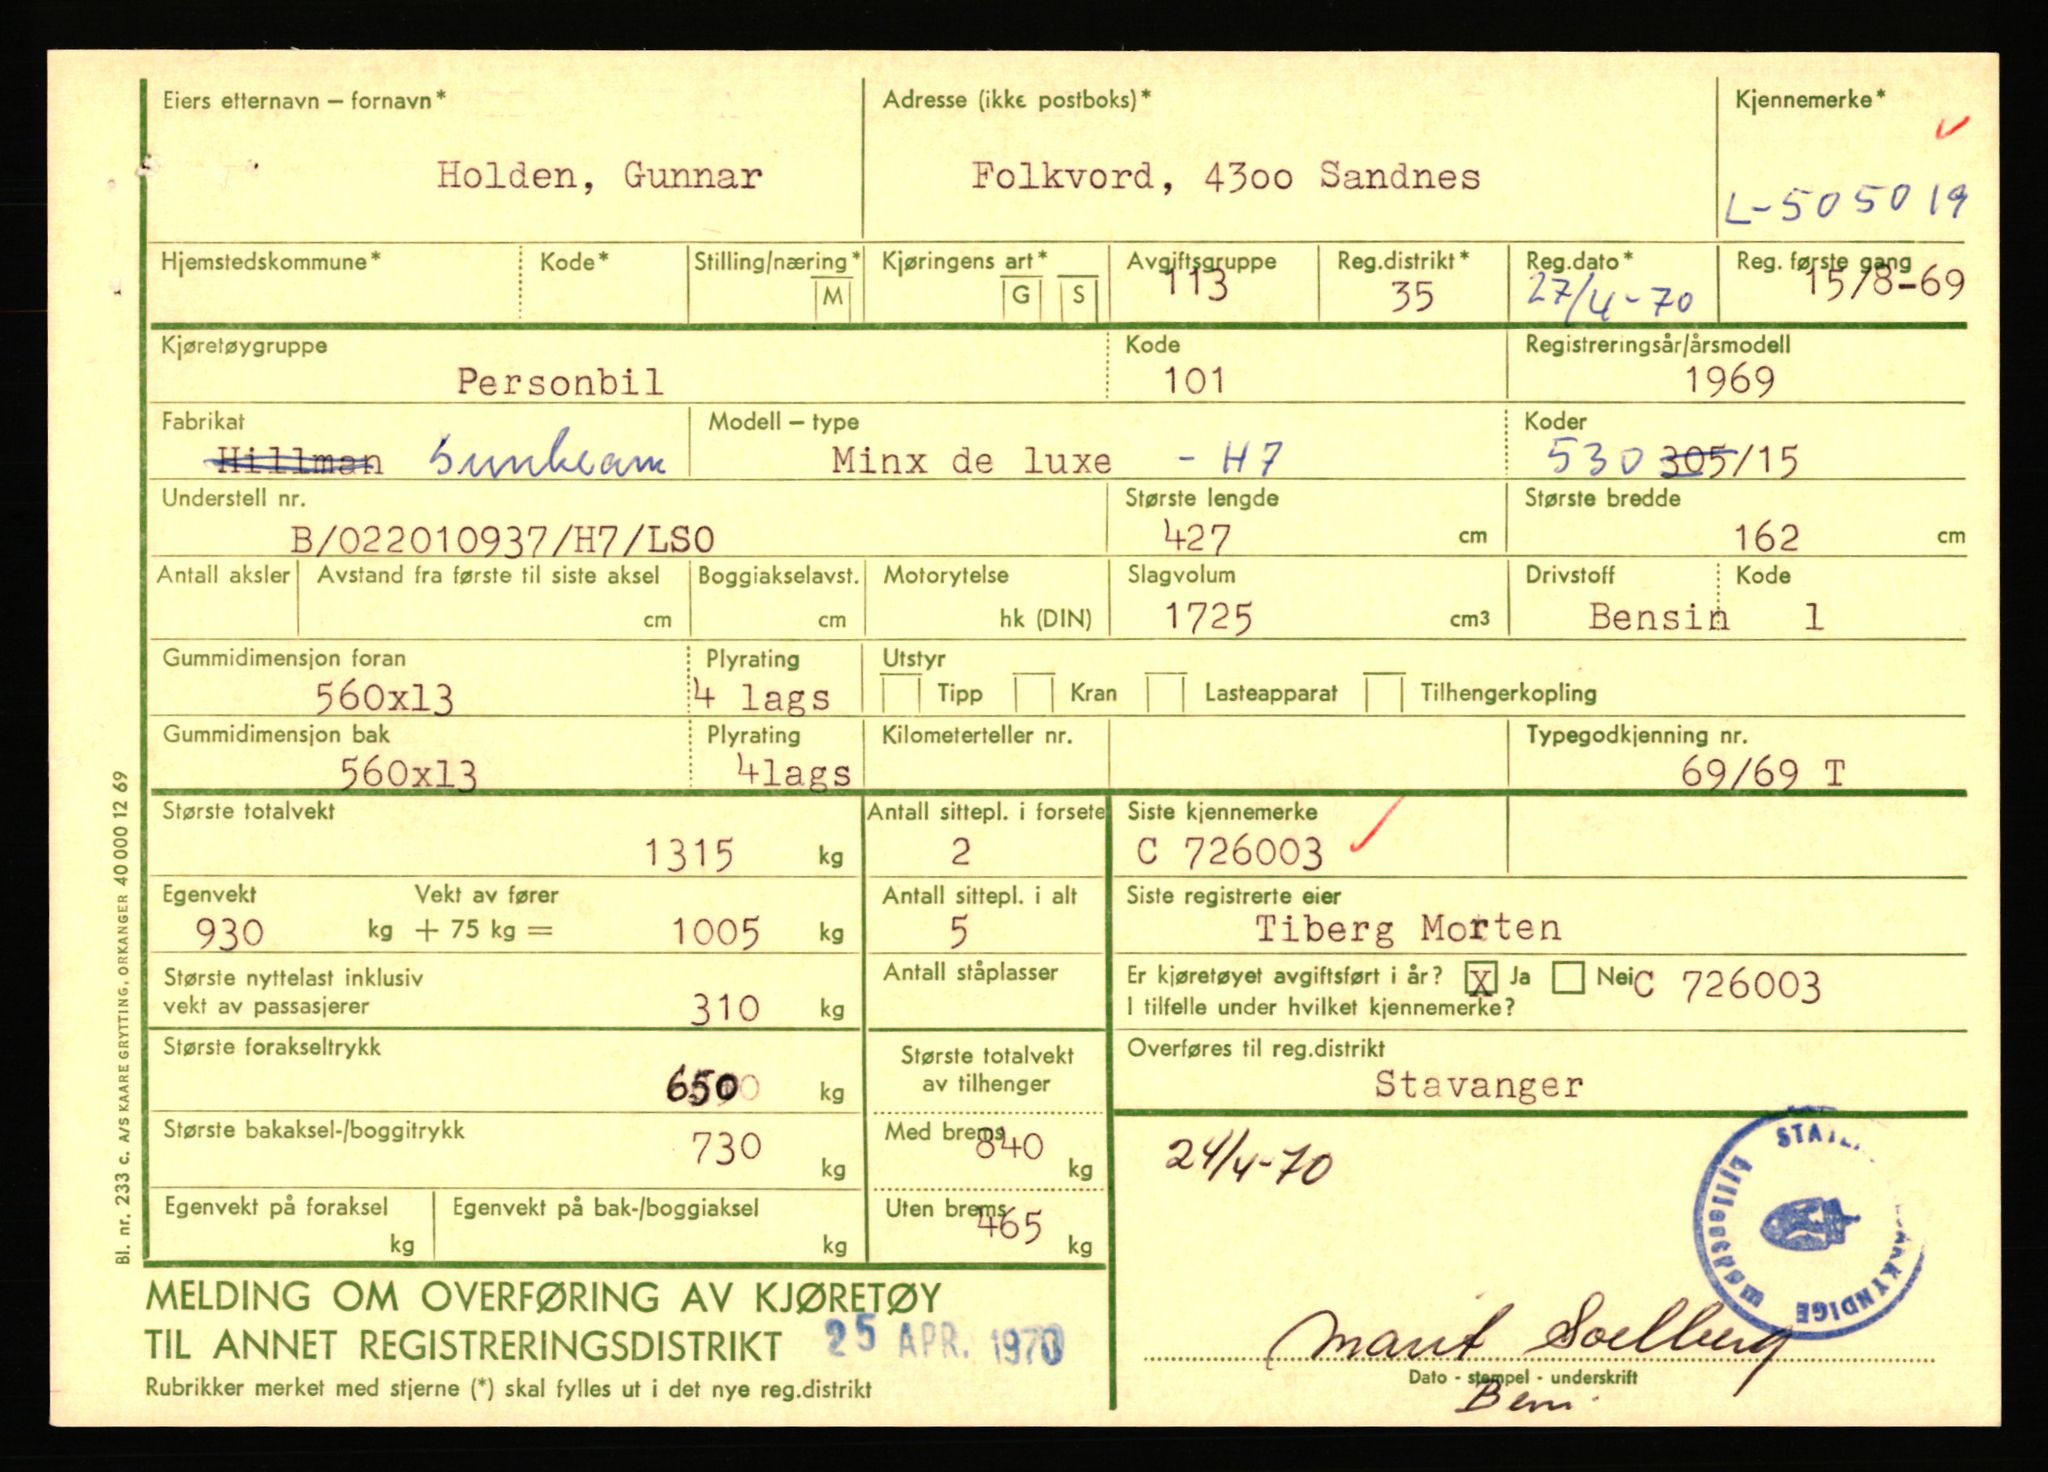 Eiers etternavn – fornavn* Adresse (ikke postboks)* Kjennemerke*
Holden, Gunnar Folkvord, 4300 Sandnes L-505019
Hjemstedskommune* Kode* Stilling/næring* Kjøringens art* Avgiftsgruppe Reg.distrikt* Reg.dato* Reg. første gang
M G S 113 35 27/4-70 15/8-69
Kjøretøygruppe Kode Registreringsår/årsmodell
Personbil 101 1969
Fabrikat Modell – type Koder
Hillman Sunbeam Minx de luxe - H7 530 305/15
Understell nr. Største lengde Største bredde
B/022010937/H7/LSO 427 cm 162 cm
Antall aksler Avstand fra første til siste aksel Boggiakselavst. Motorytelse Slagvolum Drivstoff Kode
cm cm hk (DIN) 1725 cm3 Bensin 1
Gummidimensjon foran Plyrating Utstyr
560x13 4 lags Tipp Kran Lasteapparat Tilhengerkopling
Gummidimensjon bak Plyrating Kilometerteller nr. Typegodkjenning nr.
560x13 4lags 69/69 T
Største totalvekt Antall sittepl. i forsete Siste kjennemerke
1315 kg 2 C 726003
Egenvekt Vekt av fører Antall sittepl. i alt Siste registrerte eier
930 kg + 75 kg = 1005 kg 5 Tiberg Morten
Største nyttelast inklusiv Antall ståplasser Er kjøretøyet avgiftsført i år? X Ja Nei C 726003
vekt av passasjerer 310 kg I tilfelle under hvilket kjennemerke?
Største forakseltrykk Største totalvekt Overføres til reg.distrikt
650 kg av tilhenger Stavanger
Største bakaksel-/boggitrykk 730 kg Med brems 840 kg 24/4-70
Egenvekt på foraksel Egenvekt på bak-/boggiaksel Uten brems 465
kg kg kg
MELDING OM OVERFØRING AV KJØRETØY
TIL ANNET REGISTRERINGSDISTRIKT 25 APR. 1970
Marit Soelberg
Dato - stempel - underskrift
Rubrikker merket med stjerne (*) skal fylles ut i det nye reg.distrikt
Bl. nr. 233 c. A/S KAARE GRYTTING, ORKANGER 40 000 12 69